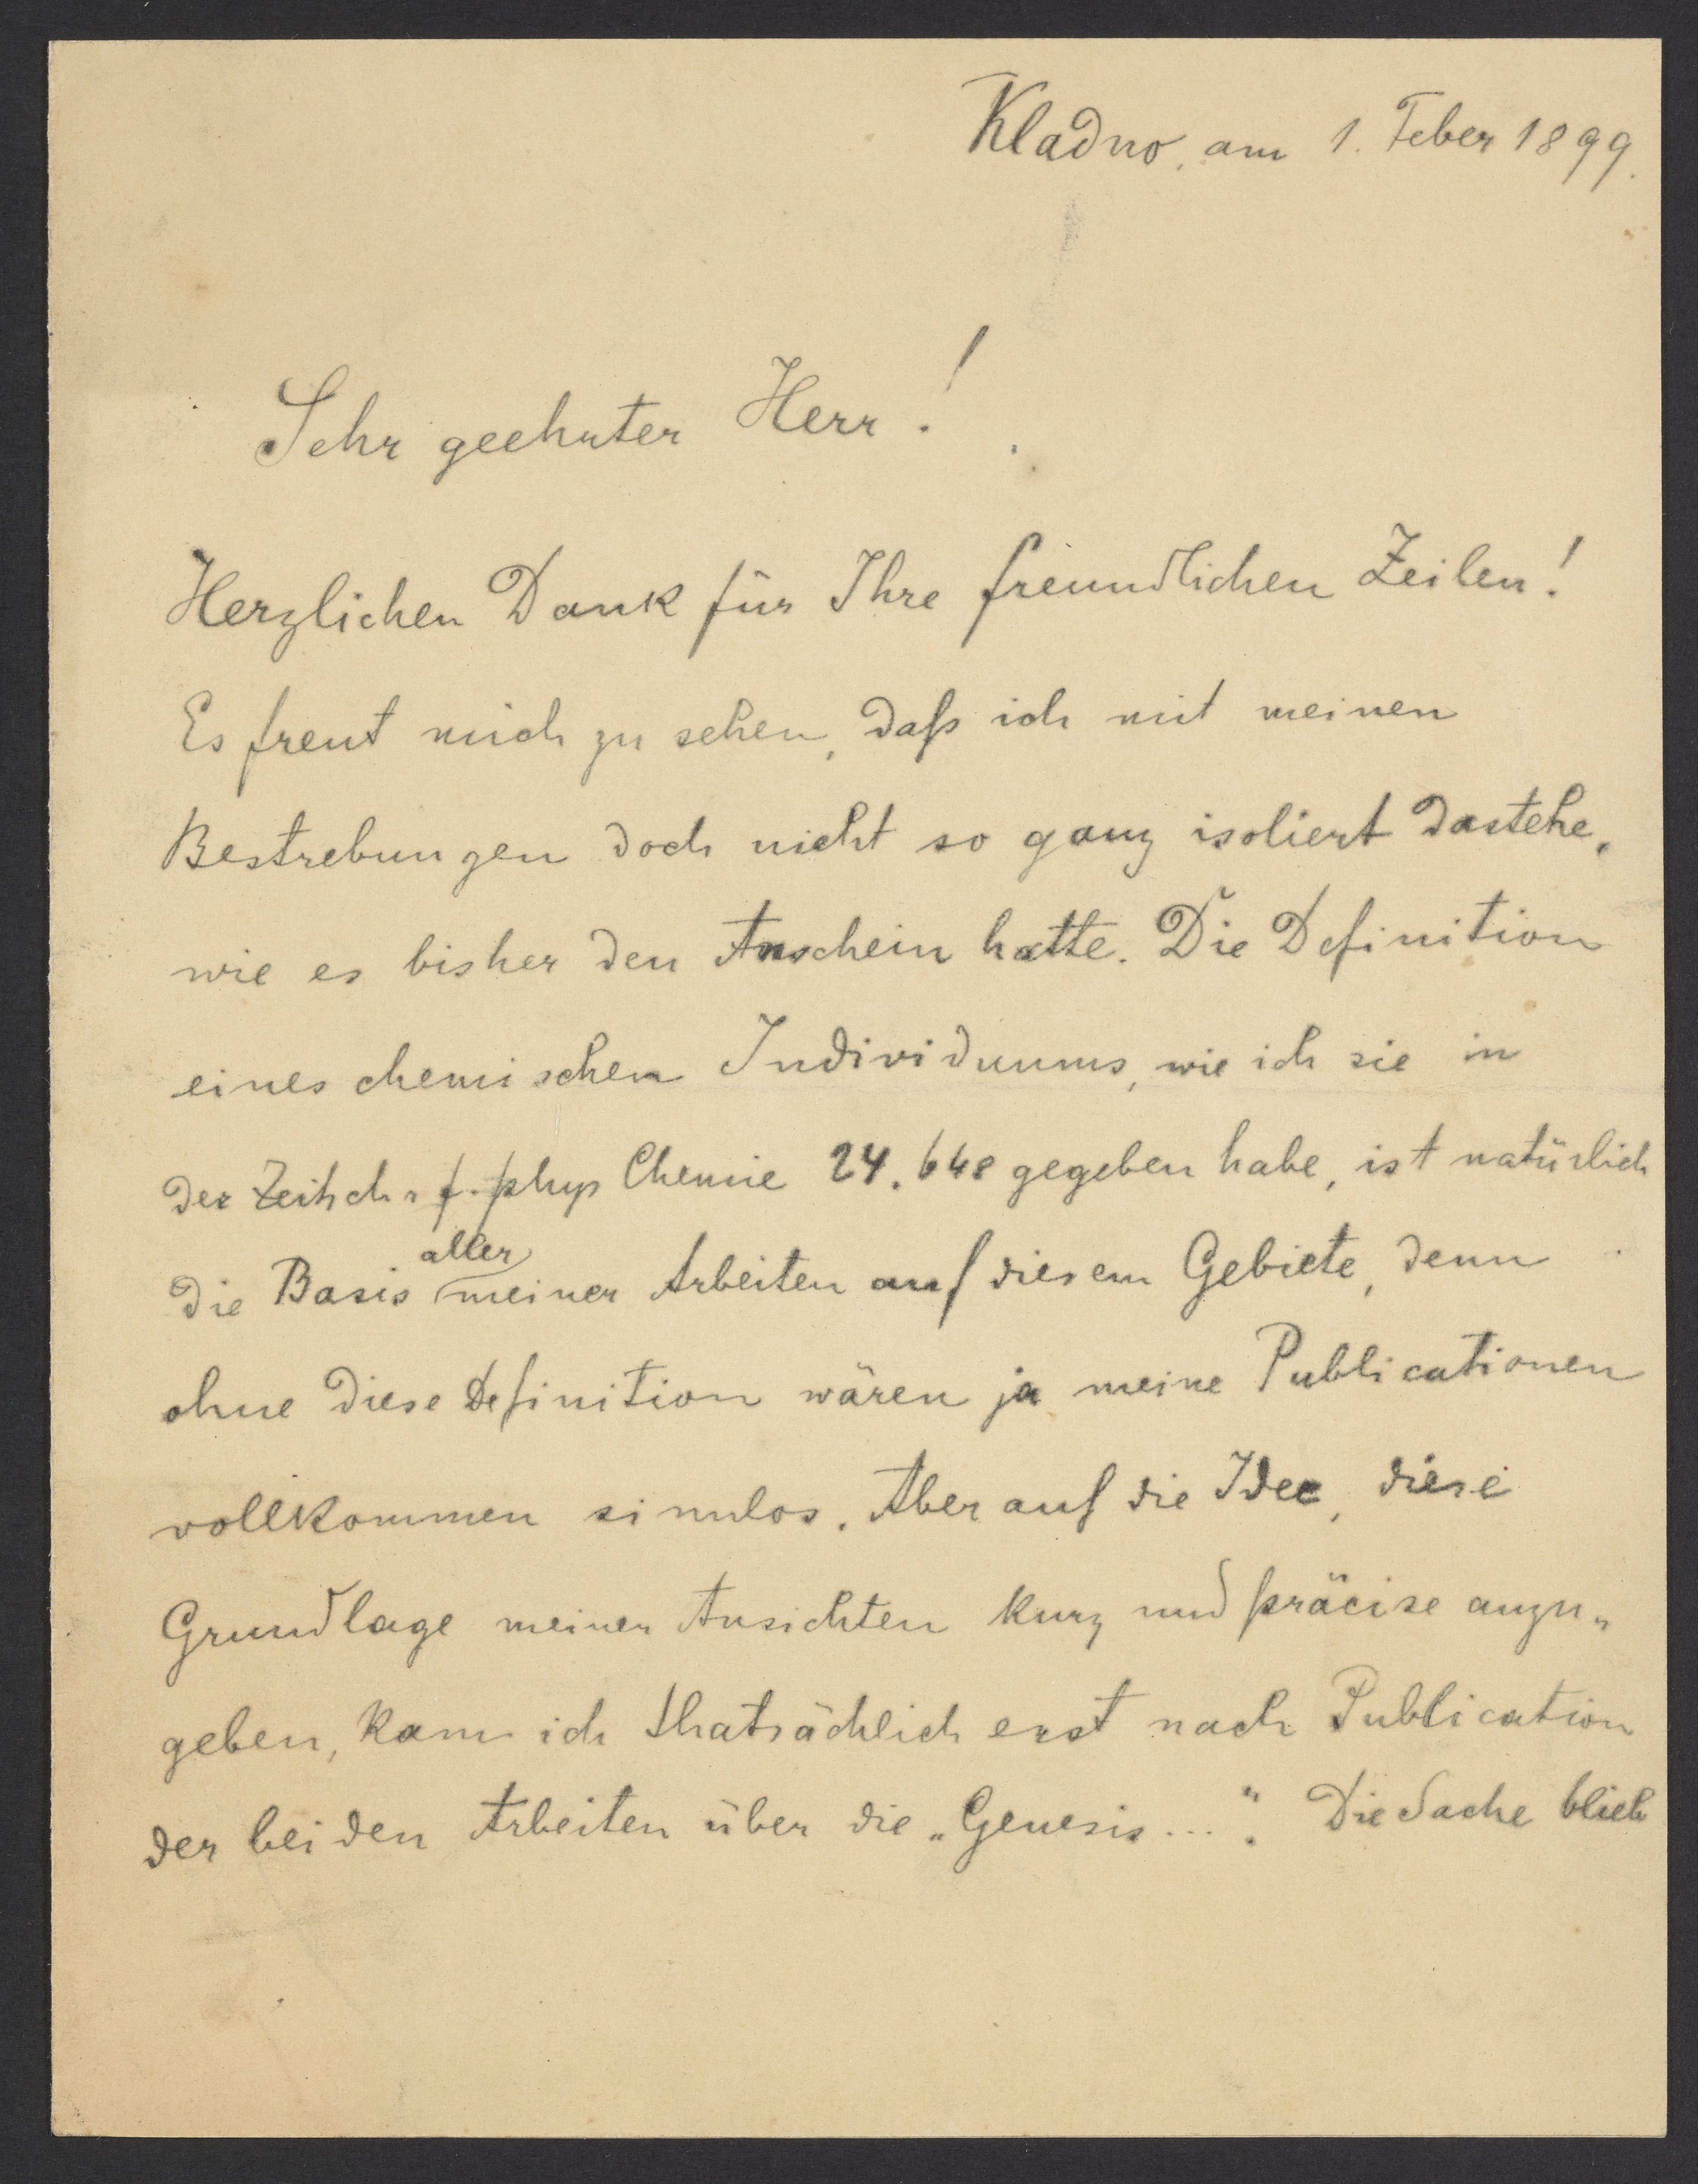 Kladno, am 1. Feber 1899.
Sehr geehrter Herr!
Herzlichen Dank für Ihre freundlichen Zeilen!
Es freut mich zu sehen, daß ich mit meinen
Bestrebungen doch nicht so ganz isoliert dastehe,
wie es bisher den Anschein hatte. Die Definition
eines chemischen Individuums, wie ich sie in
der Zeitschr f. phys Chemie 24. 648 gegeben habe, ist natürlich
die Basis aller meiner Arbeiten auf diesem Gebiete, denn
ohne diese Definition wären ja meine Publicationen
vollkommen sinnlos. Aber auf die Idee, diese
Grundlage meiner Ansichten kurz und präcise anzu„
geben, kam ich thatsächlich erst nach Publication
der beiden Arbeiten über die „Genesis...“. Die Sache blieb